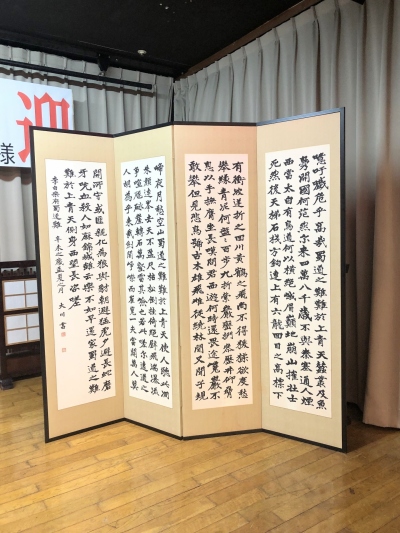 迎
様
噫吁嚱危乎高哉蜀道之難難於上青天蠶叢及魚
鳧開國何茫然爾来四萬八千歳不與秦塞通人煙
西當太白有鳥道何以横絶峨眉巓地崩山摧壮士
死然後天梯石棧方鉤連上有六龍回日之高標下
有衝波逆折之回川黄鶴之飛尚不得猿猱欲度愁
攀縁青泥何盤盤百歩九折縈巌巒捫参歴井仰脅
息以手撫膺坐長嘆問君西遊何時還畏途巉巌不
敢攀但見悲鳥號古木雄飛雌従繞林間又聞子規
啼夜月愁空山蜀道之難難於上青天使人聴此凋
朱顔連峯去天不盈尺枯松倒挂倚絶壁飛湍瀑流
争喧豗砯厓轉石萬壑雷其險也若此嗟爾遠道之
人胡為乎来哉劍閣崢嶸而崔嵬一夫當関萬人莫
開所守或匪親化為狼與豺朝避猛虎夕避長蛇磨
牙吮血殺人如麻錦城雖云樂不如早還家蜀道之
難難於上青天側身西望長咨嗟
李白樂府蜀道難 之歳孟夏之月 大 書